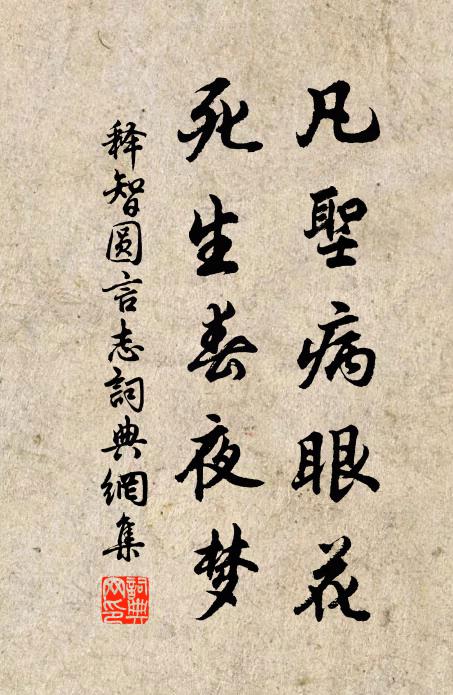 凡聖病眼花
死生春夜梦
释智圆言志詞典網集
詞典网印